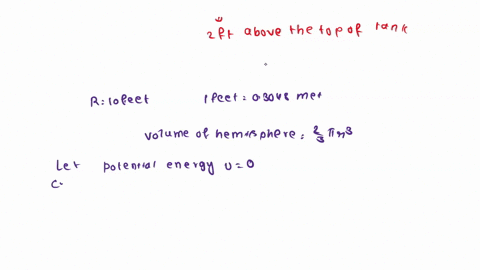 2ft above the top of tank
R = 10feet 1 feet = 0.3048 met
volume of hemisphere = 2/3 πr3
Let potential energy U = 0